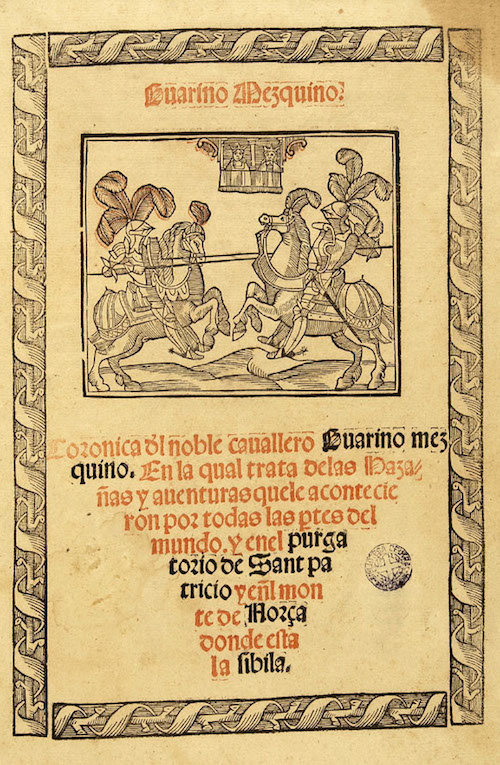 Guarino Mezquino.
Coronica đl noble cauallero Guarino mez
quino. En la qual trata delas Haza-
ñas y auenturas quele acontecie
ron por todas las ꝑtes del
mundo. y enel purga
torio de Sant pa
tricio y eñl mon
te de Norça
donde esta
la sibila.